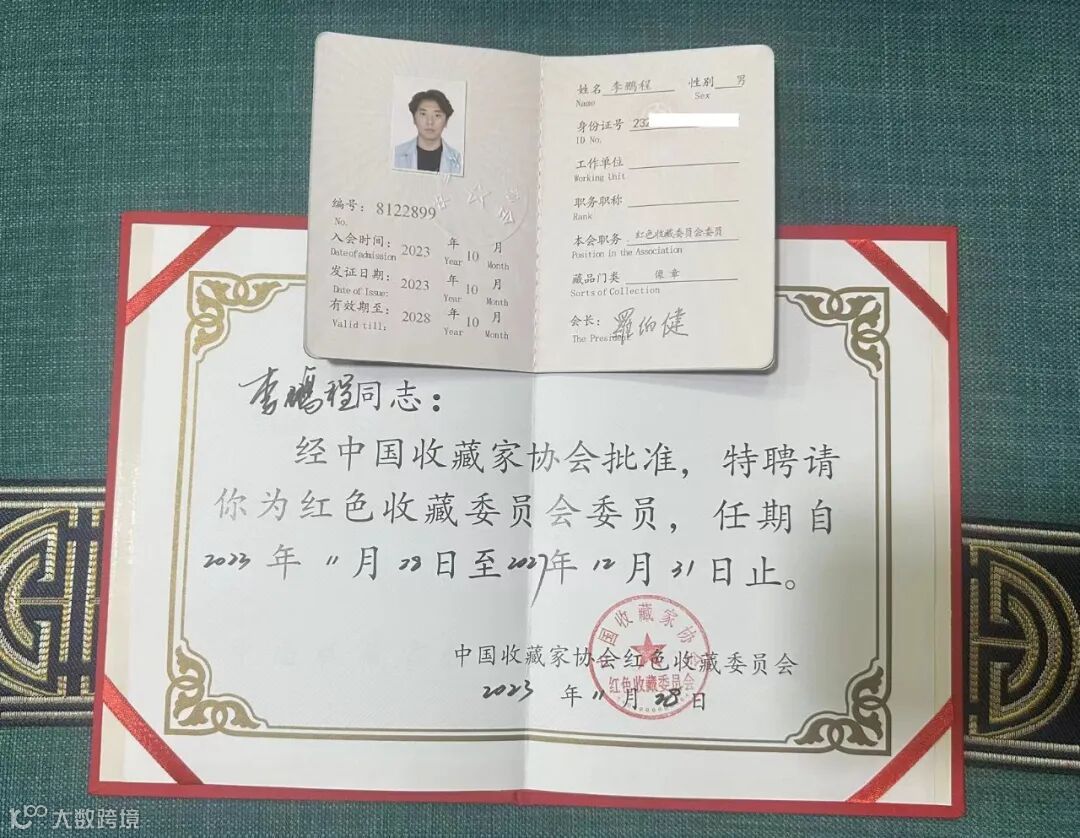 编号：8122899
No.
入会时间：2023年10月
Date of admission Year Month
发证日期：2023年10月
Date of Issue: Year Month
有效期至：2028年10月
Valid till: Year Month
姓名 李鹏程 性别 男
Name Sex
身份证号 232
ID No.
工作单位
Working Unit
职务职称
Rank
本会职务：红色收藏委员会委员
Position in the Association
藏品门类 像章
Sorts of Collection
会长：羅伯健
The President
李鵬程同志：
经中国收藏家协会批准，特聘请
你为红色收藏委员会委员，任期自
2023年11月28日至2027年12月31日止。
中国收藏家协会红色收藏委员会
2023年11月28日
中国收藏家协会
红色收藏委员会
大数跨境